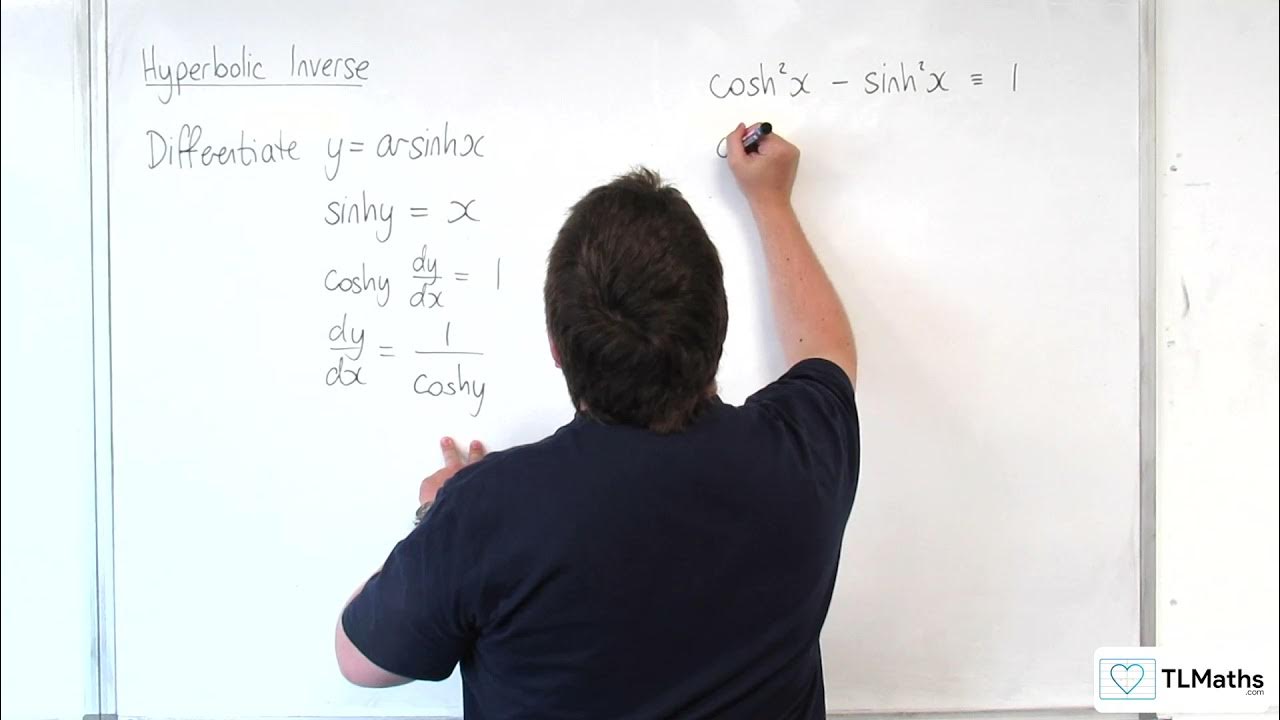 Hyperbolic Inverse
Differentiate y = arsinhx
sinhy = x
coshy dy/dx = 1
dy/dx = 1/coshy
cosh²x − sinh²x ≡ 1
c
TLMaths
.com